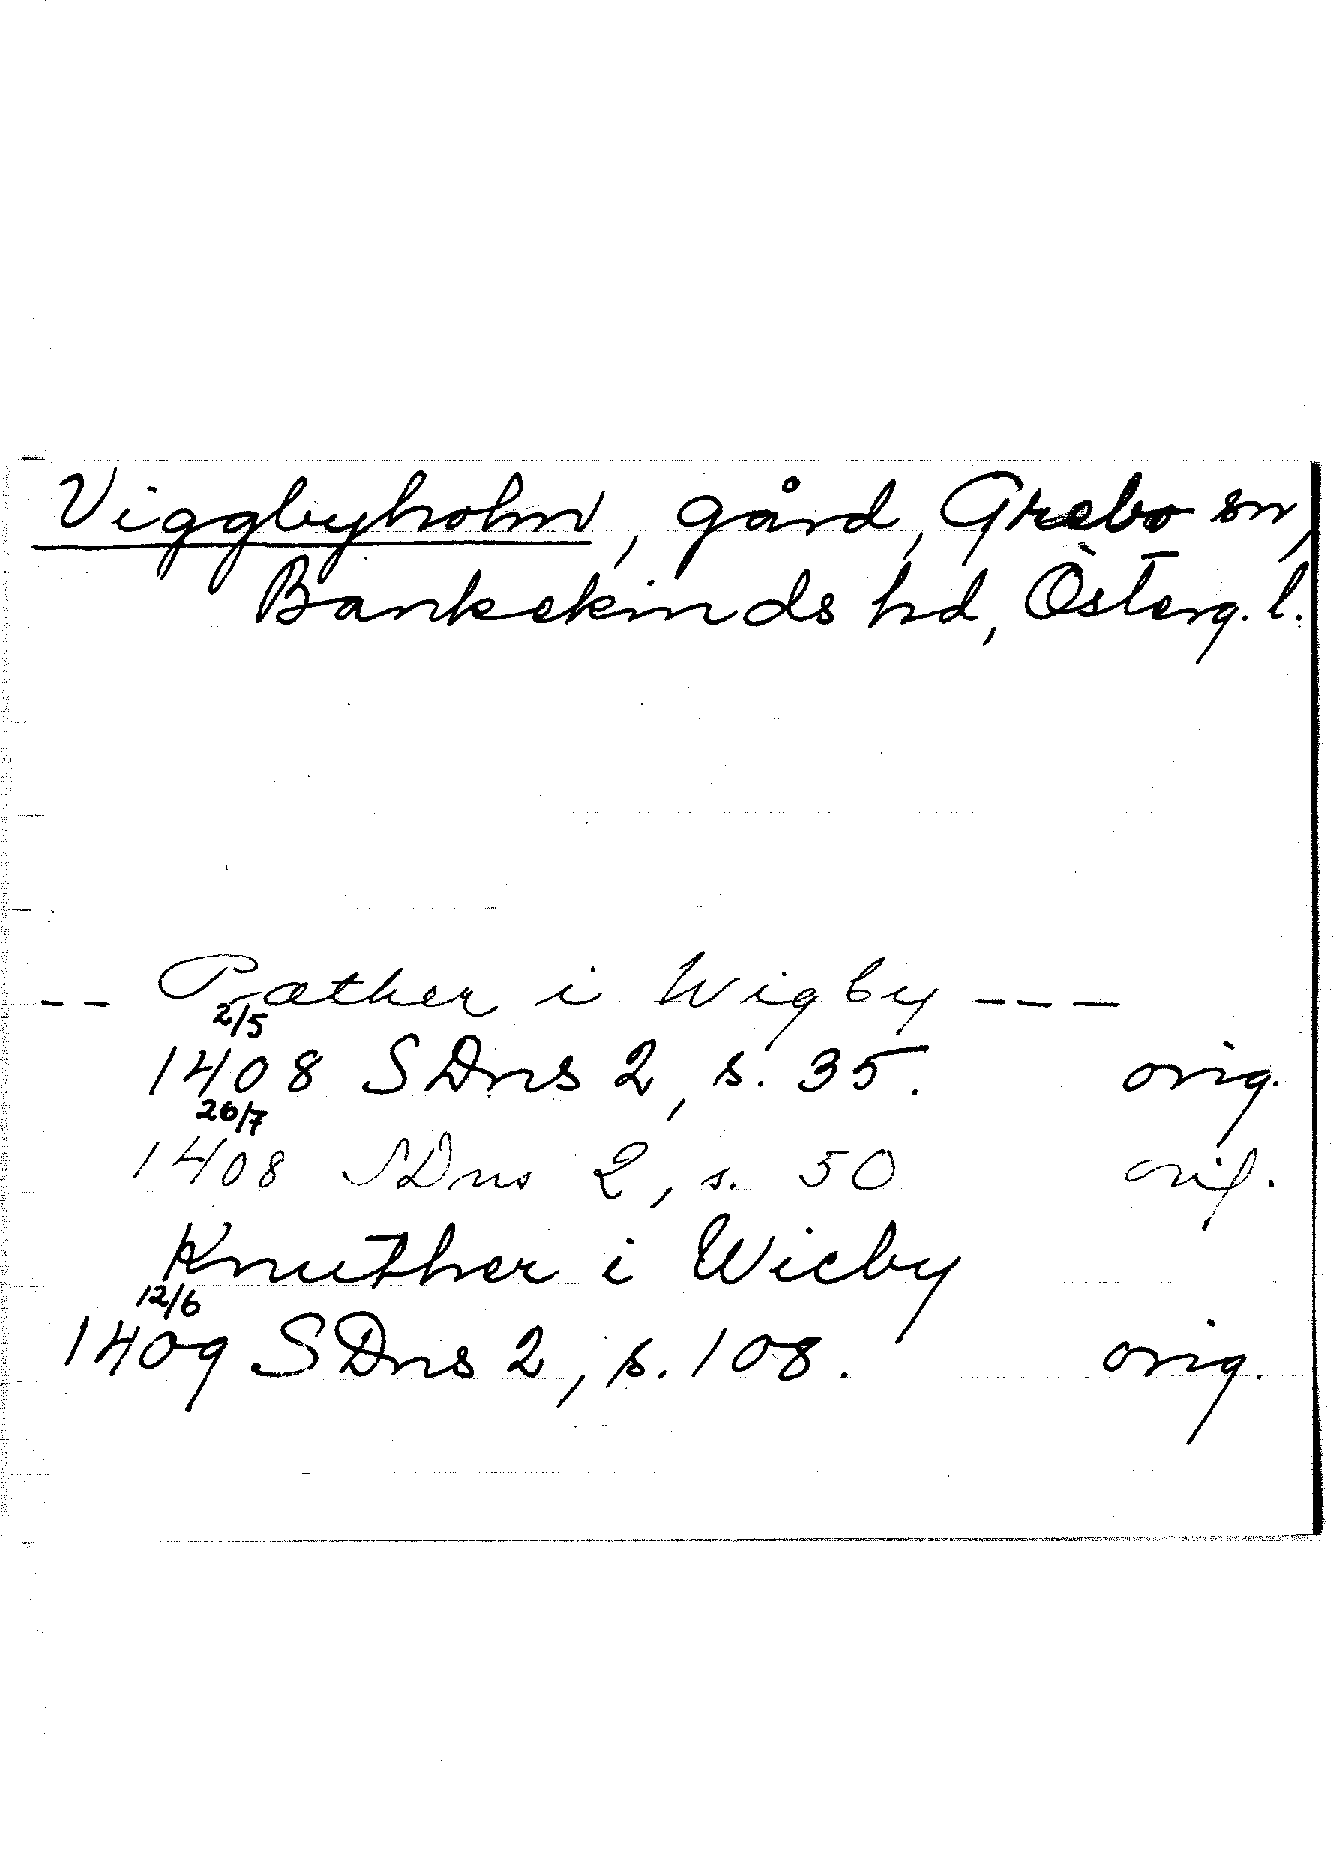 Viggbyholm, gård, Grebo sn,
Bankekinds hd, Österg. l.
-- Pæther i Wigby ---
2/5
1408 SDns 2, s. 35. orig.
26/7
1408 SDns 2, s. 50 orig.
Knuther i Wicby
12/6
1409 SDns 2, s. 108. orig.